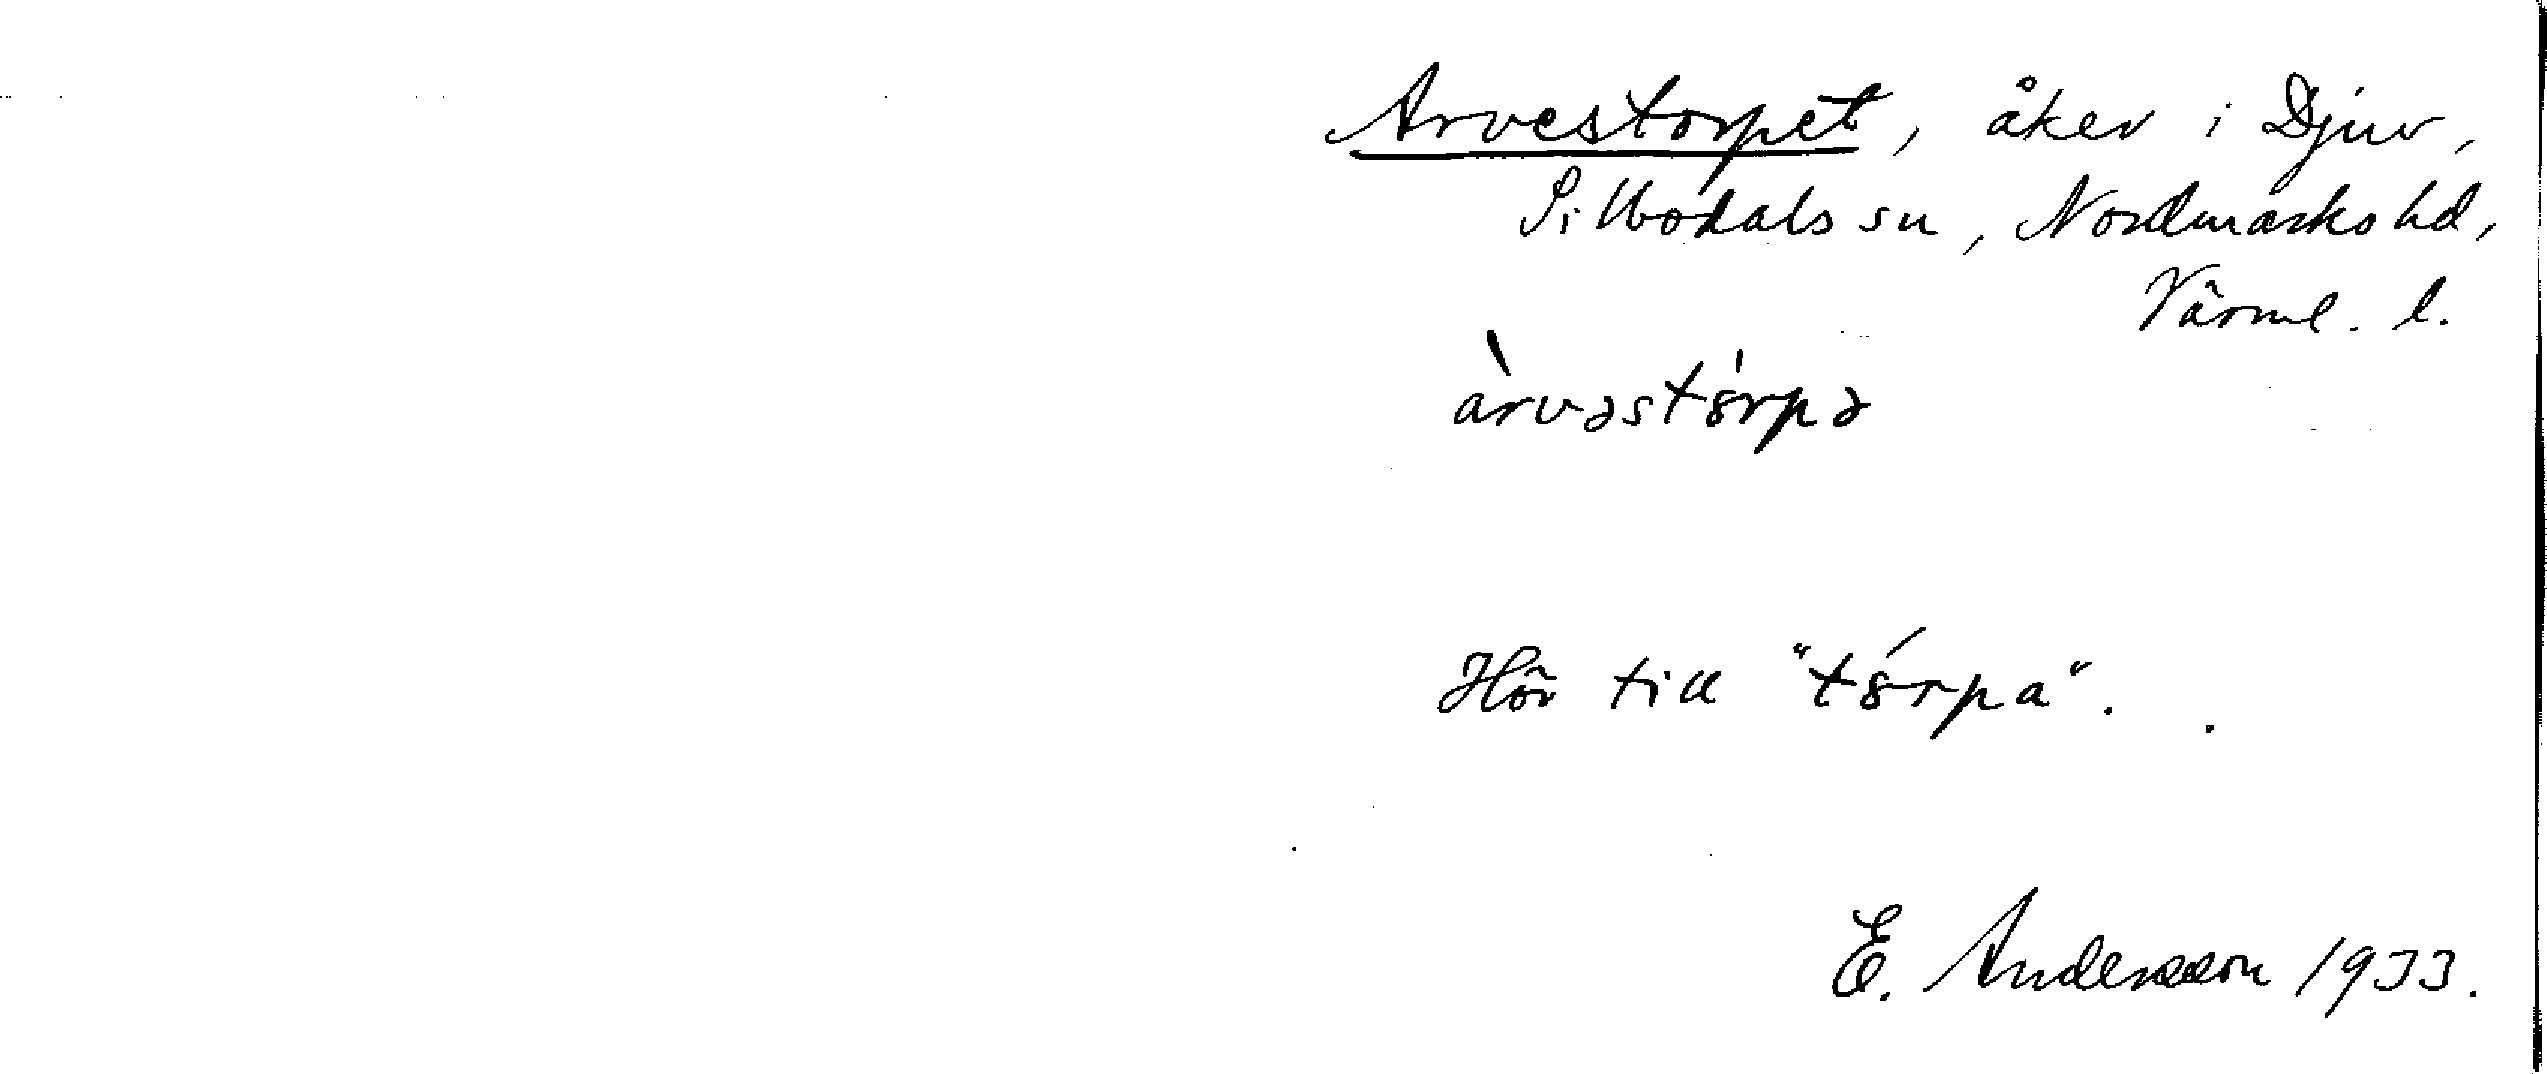 Arvestorpet, åker i Djuv,
Sillbodals sn, Nordmarks hd,
Värml. l.
àrvəstȯ́rpə
Hör till "tȯ́rpa".
E. Andersson 1933.